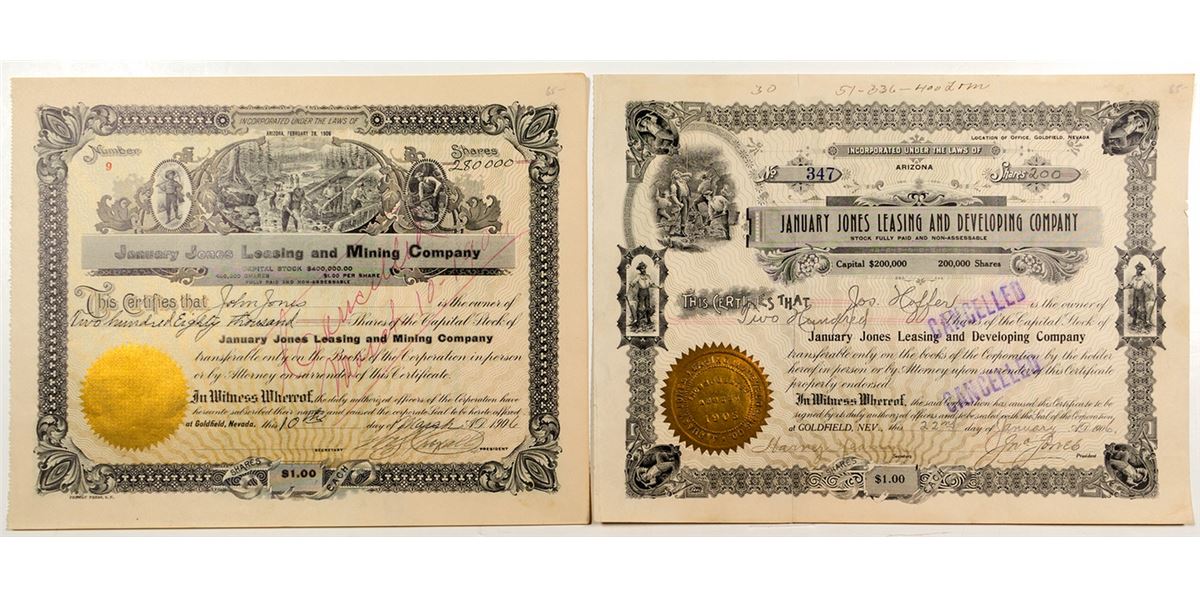 65-
INCORPORATED UNDER THE LAWS OF
ARIZONA, FEBRUARY 28, 1906
Number
9
Shares
280000
January Jones Leasing and Mining Company
CAPITAL STOCK $400,000.00
400,000 SHARES $1.00 PER SHARE
FULLY PAID AND NON-ASSESSABLE
This Certifies that John Jones is the owner of
Two hundred Eighty thousand Shares of the Capital Stock of
January Jones Leasing and Mining Company
transferable only on the Books of the Corporation in person
or by Attorney on surrender of this Certificate.
In Witness Whereof, the duly authorized officers of the Corporation have
hereunto subscribed their names and caused the corporate Seal to be hereto affixed
at Goldfield, Nevada, this 10th day of March A.D. 1906
SECRETARY PRESIDENT
Cancelled
March 10-1906
SHARES $1.00 EACH
30 51-336-400
65-
LOCATION OF OFFICE, GOLDFIELD, NEVADA
INCORPORATED UNDER THE LAWS OF
ARIZONA
No 347
Shares 200
JANUARY JONES LEASING AND DEVELOPING COMPANY
STOCK FULLY PAID AND NON-ASSESSABLE
Capital $200,000 200,000 Shares
THIS CERTIFIES THAT Jos. Hoffer is the owner of
Two Hundred Shares of the Capital Stock of
January Jones Leasing and Developing Company
transferable only on the books of the Corporation by the holder
hereof in person or by Attorney upon surrender of this Certificate
properly endorsed.
In Witness Whereof, the said Corporation has caused this Certificate to be
signed by its duly authorized officers and to be sealed with the Seal of the Corporation
at GOLDFIELD, NEV., this 22nd day of January A.D. 1906,
Jno Jones
Secretary President
CANCELLED
CANCELLED
SHARES $1.00 EACH